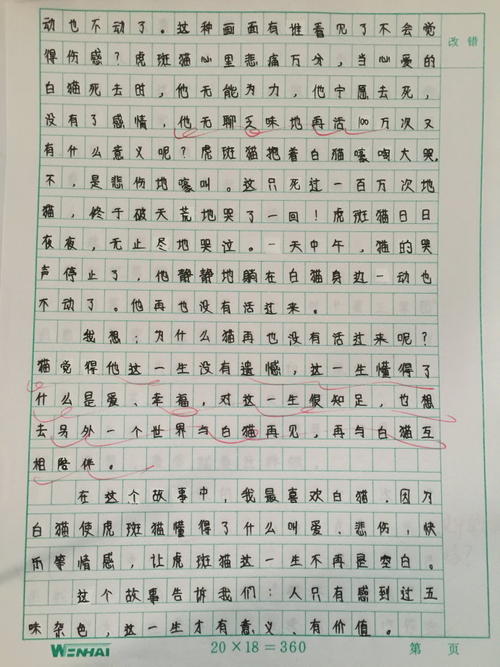 动也不动了。这种画面有谁看见了不会觉
改错
得伤感？虎斑猫心里悲痛万分，当心爱的
白猫死去时，他无能为力，他宁愿去死，
没有了感情，他无聊乏味地再活100万次又
有什么意义呢？虎斑猫抱着白猫嚎啕大哭。
不，是悲伤地嚎叫。这只死过一百万次地
猫，终于破天荒地哭了一回！虎斑猫日日
夜夜，无止尽地哭泣。一天中午，猫的哭
声停止了，他静静地躺在白猫身边一动也
不动了。他再也没有活过来。
我想：为什么猫再也没有活过来呢？
猫觉得他这一生没有遗憾，这一生懂得了
什么是爱、幸福，对这一生很知足，也想
去另外一个世界与白猫再见，再与白猫互
相陪伴。
在这个故事中，我最喜欢白猫，因为
白猫使虎斑猫懂得了什么叫爱、悲伤，快
乐等情感，让虎斑猫这一生不再是空白。
这个故事告诉我们：人只有感到过五
味杂色，这一生才有意义、有价值。
WENHAI 20×18=360 第 页